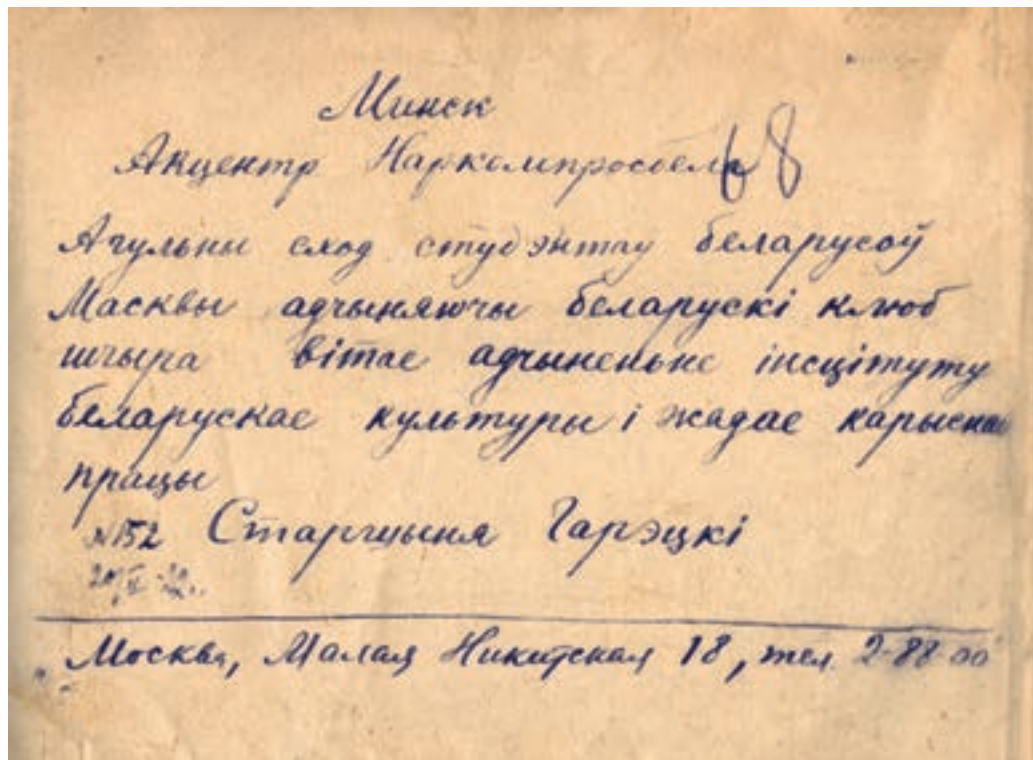 Минск
Акцентр Наркомпросбела 68
Агульны сход студэнтау беларусоў
Масквы адчыняючы беларускі клюб
шчыра вітае адчыненьне інсцітуту
беларускае культуры і жадае карыснае
працы
№152 Старшыня Гарэцкі
Москва, Малая Никитская 18, тел. 2-88-00